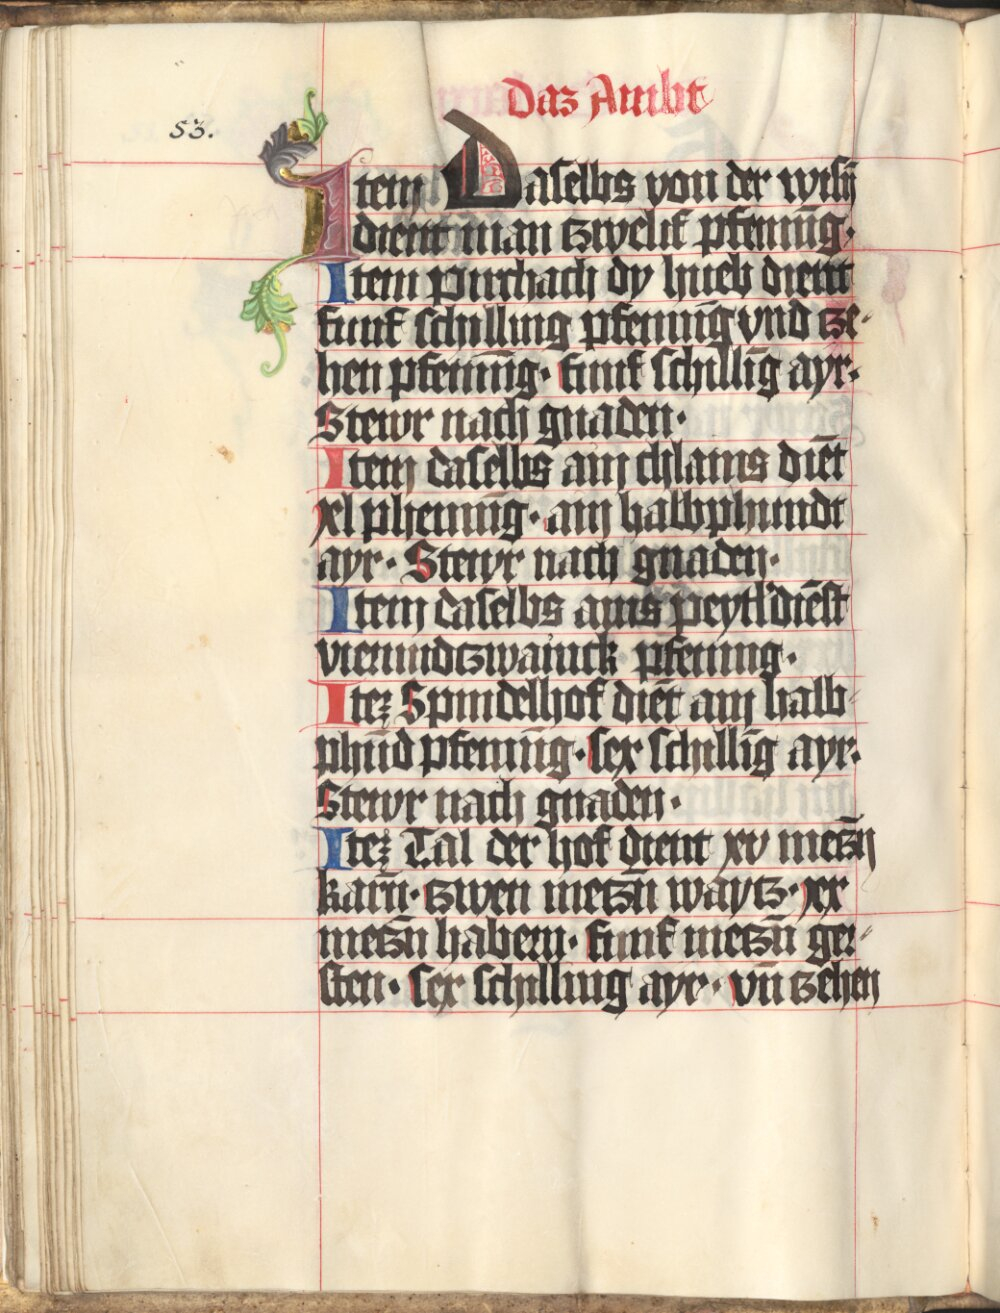 Daz Ambt
53.
Item Daselbs von der wisñ
dient man tzwelif pfenniñg·
Item Purchach dy hueb dient
funf schilling pfenniñg vnd tze-
hen pfenniñg· funf schilliñg ayr·
Stewr nach gnaden·
Item daselbs ain chlains diēt
xl phenniñg· ain halbphundt
ayr· Stewr nach gnaden·
Item daselbs ains peytl diēst
vierundtzwainck pfening·
Itez Spindelhof diēt ain halb
phūd pfenniñg· sex schilliñg ayr·
Stewr nach gnaden·
Itez Tal der hof dient xv metzñ
karñ· tzwen metzñ waytz· xx
metzñ habern· funf metzñ ger-
sten· sex schilling ayr· vñ tzehen